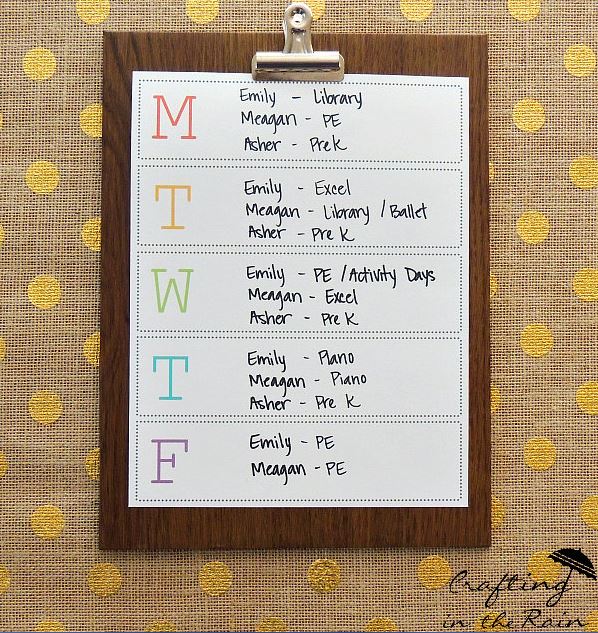 M
Emily - Library
Meagan - PE
Asher - PreK
T
Emily - Excel
Meagan - Library / Ballet
Asher - Pre K
W
Emily - PE / Activity Days
Meagan - Excel
Asher - Pre K
T
Emily - Piano
Meagan - Piano
Asher - Pre K
F
Emily - PE
Meagan - PE
Crafting
in the Rain